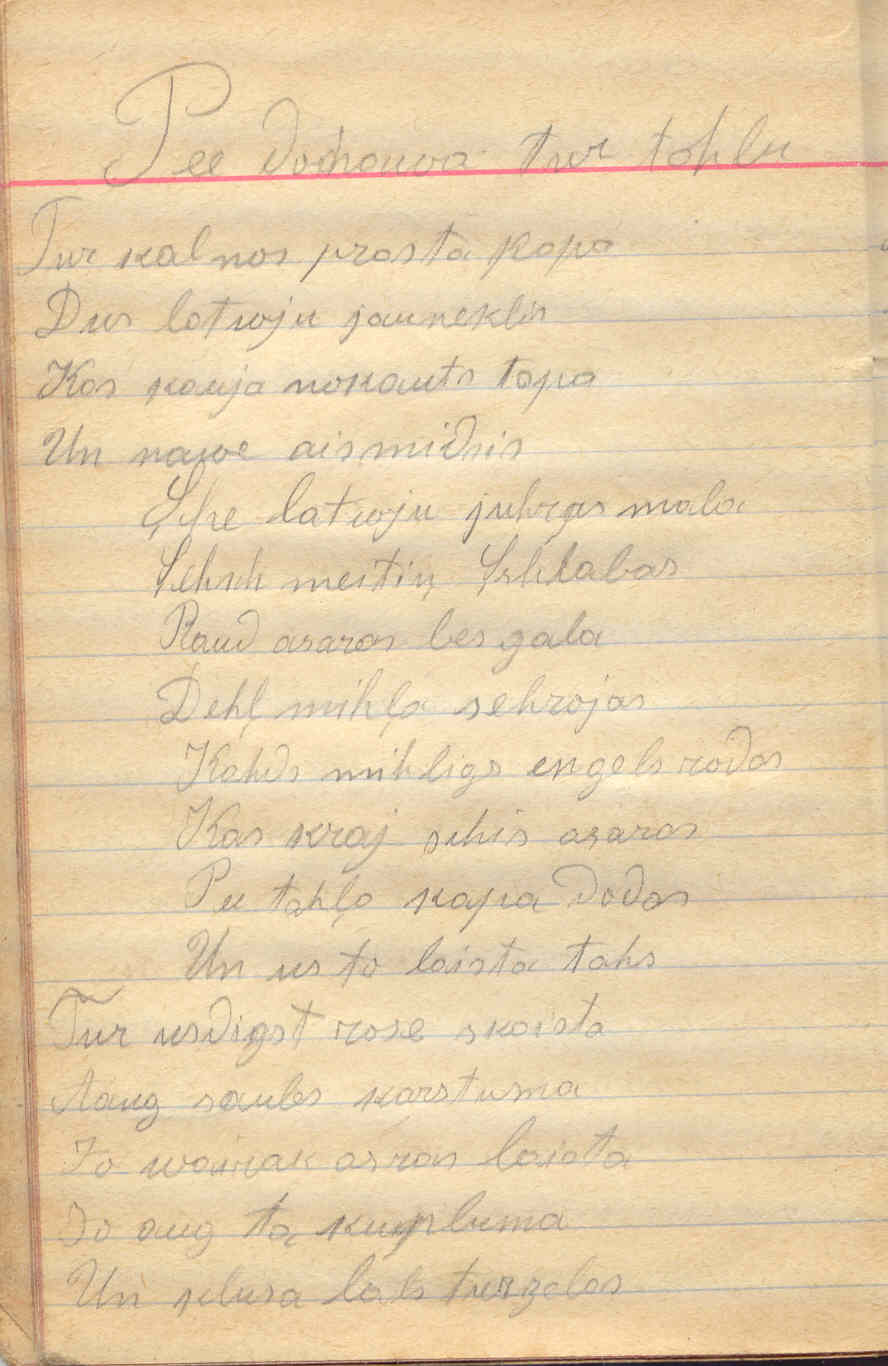 Pee Donawa tur tahlu
Tur kalnos prosta kapa
Dus latwju jauneklis
Kas kauja nokauts tapa
Un nawe aismidsis
She latwju juhras mala
Sehsh meitiņ
Raud asaras bes gala
Dehļ mihļa sehrojas
Kahds mihligs engels rodas
Kas kraj shis asaras
Pee tahļa kapa dodas
Un us to laista tahs
Tur usdigst rose skaista
Aaug saules karstuma
Jo wairak asras laista
Jo aug ta kupluma
Un klusa